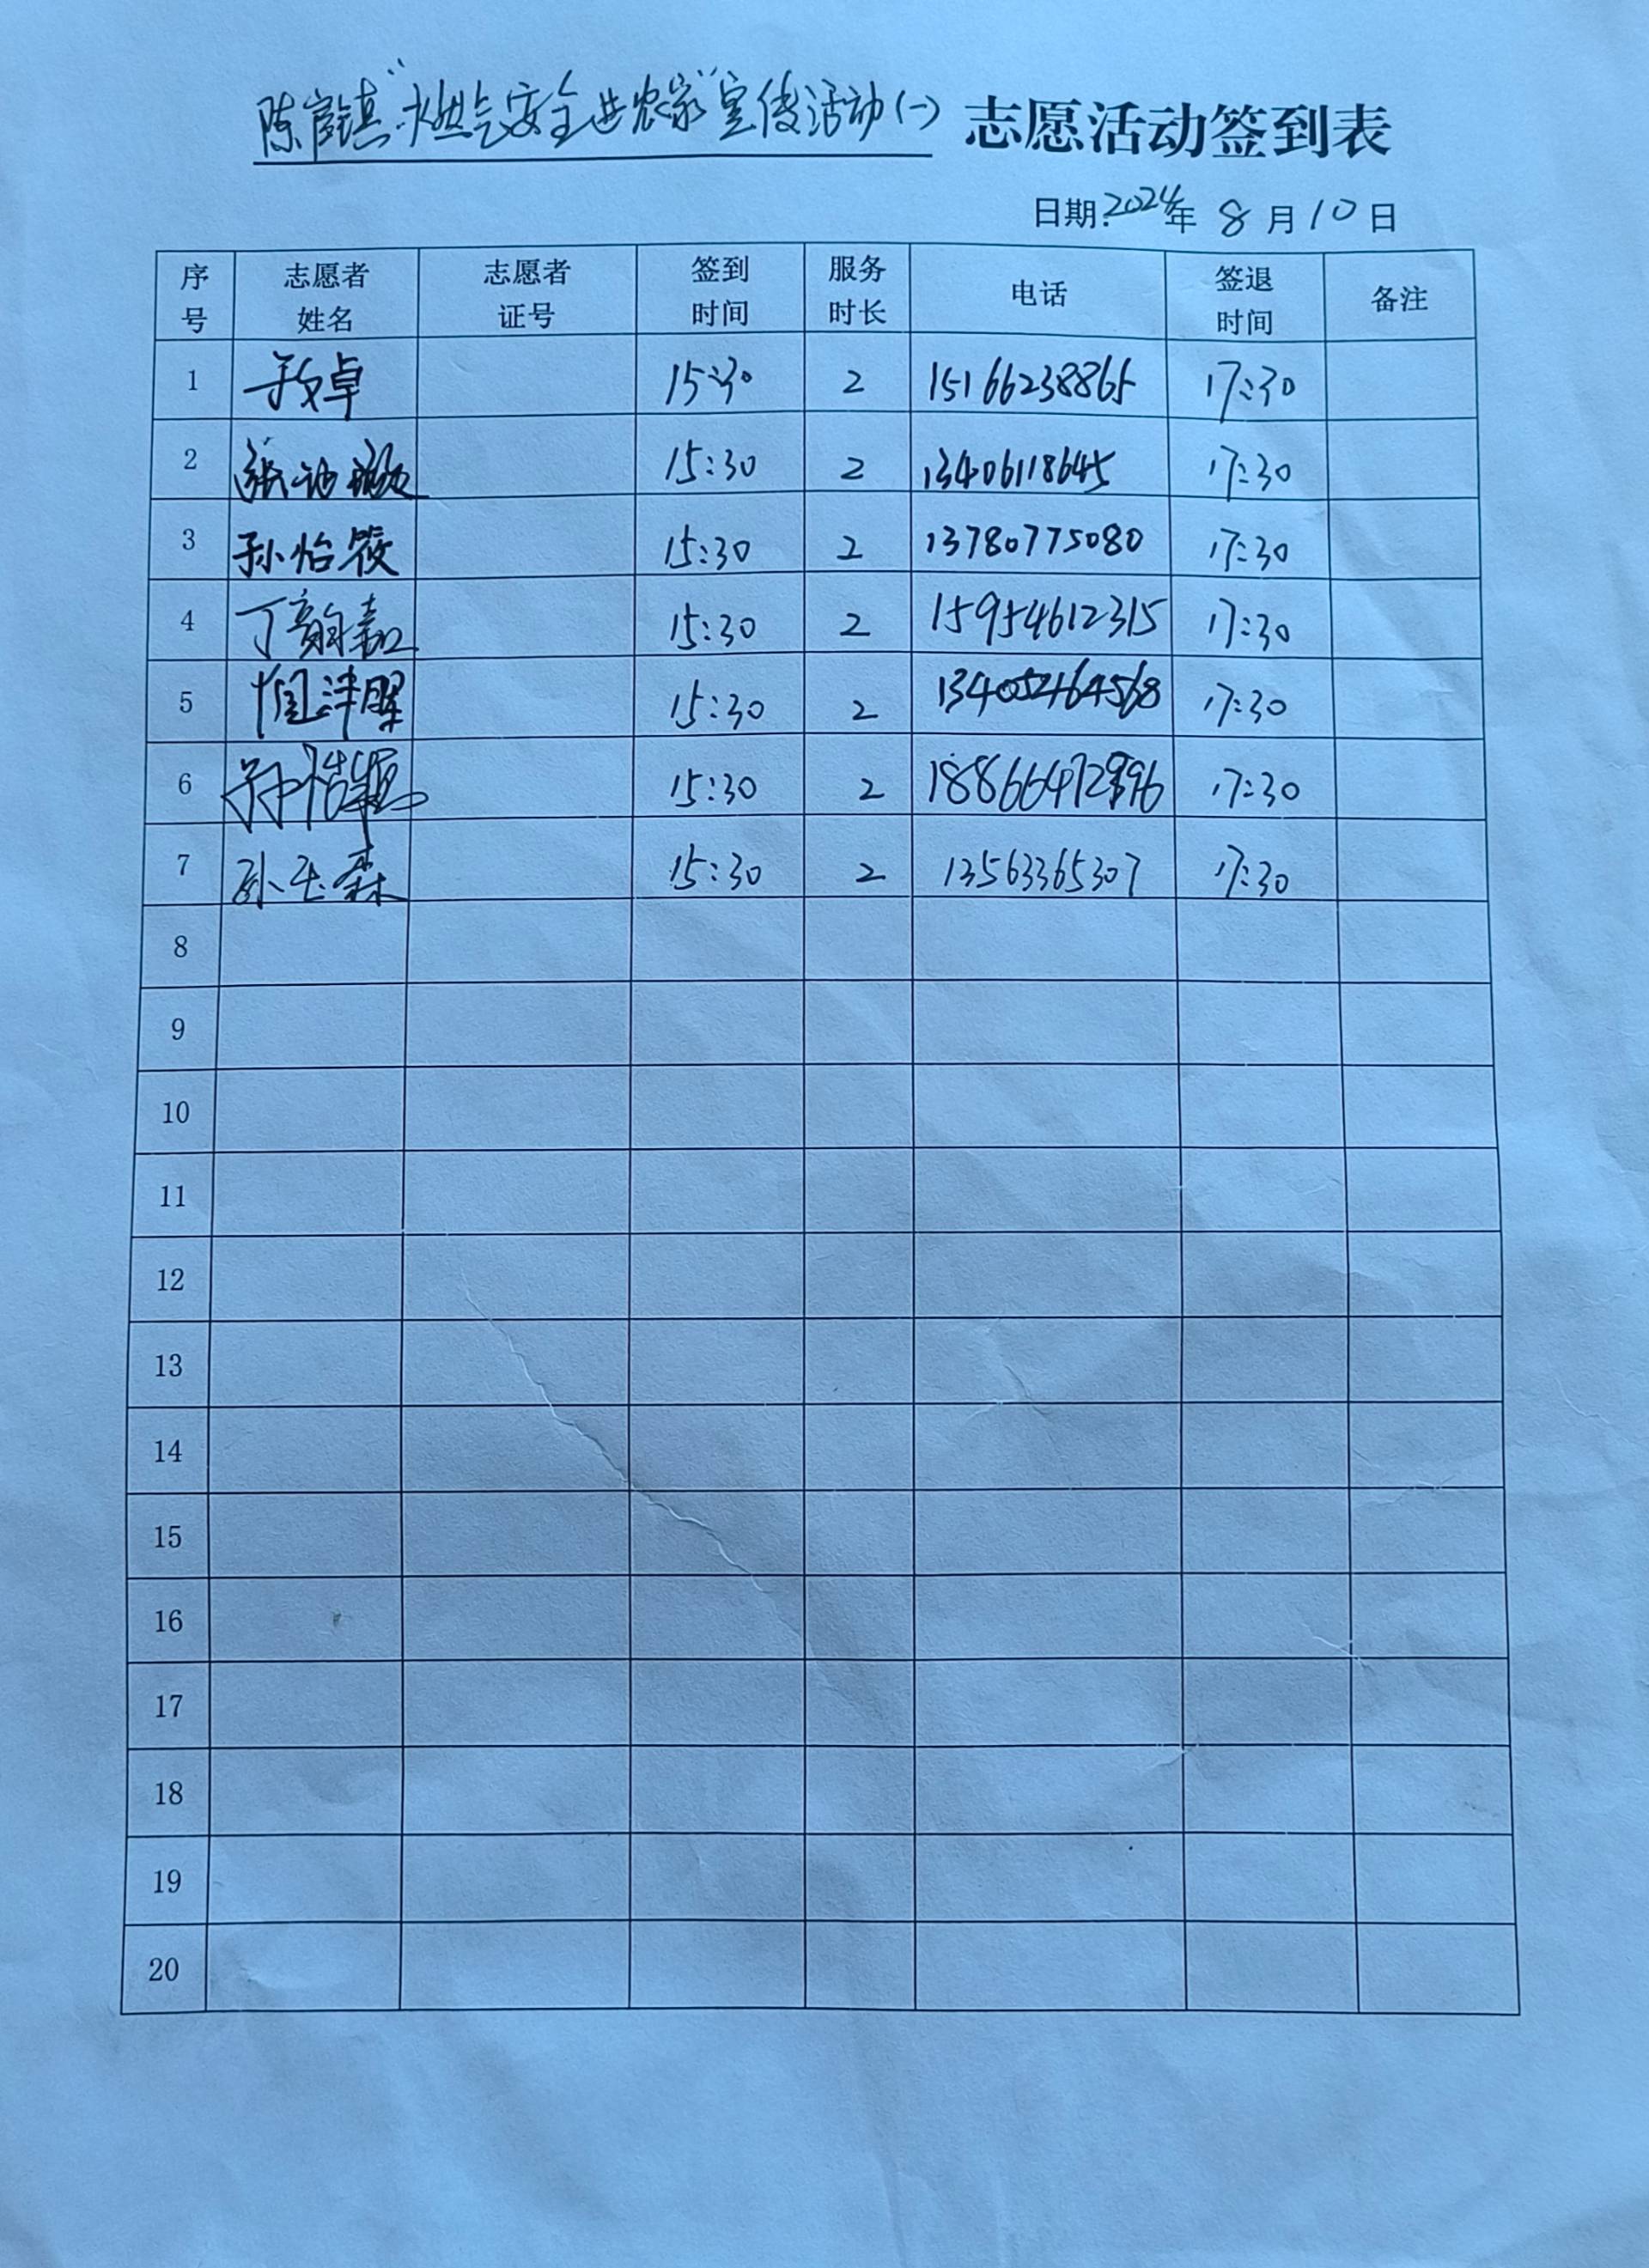 陈官镇“燃气安全进农家”宣传活动(一) 志愿活动签到表
日期:2024年 8 月 10 日
序号 志愿者姓名 志愿者证号 签到时间 服务时长 电话 签退时间 备注
1 15:30 2 15166238865 17:30
2 15:30 2 13406118645 17:30
3 孙怡筱 15:30 2 13780775080 17:30
4 丁韵嘉 15:30 2 15954612315 17:30
5 15:30 2 17:30
6 15:30 2 17:30
7 15:30 2 13563365307 17:30
8
9
10
11
12
13
14
15
16
17
18
19
20